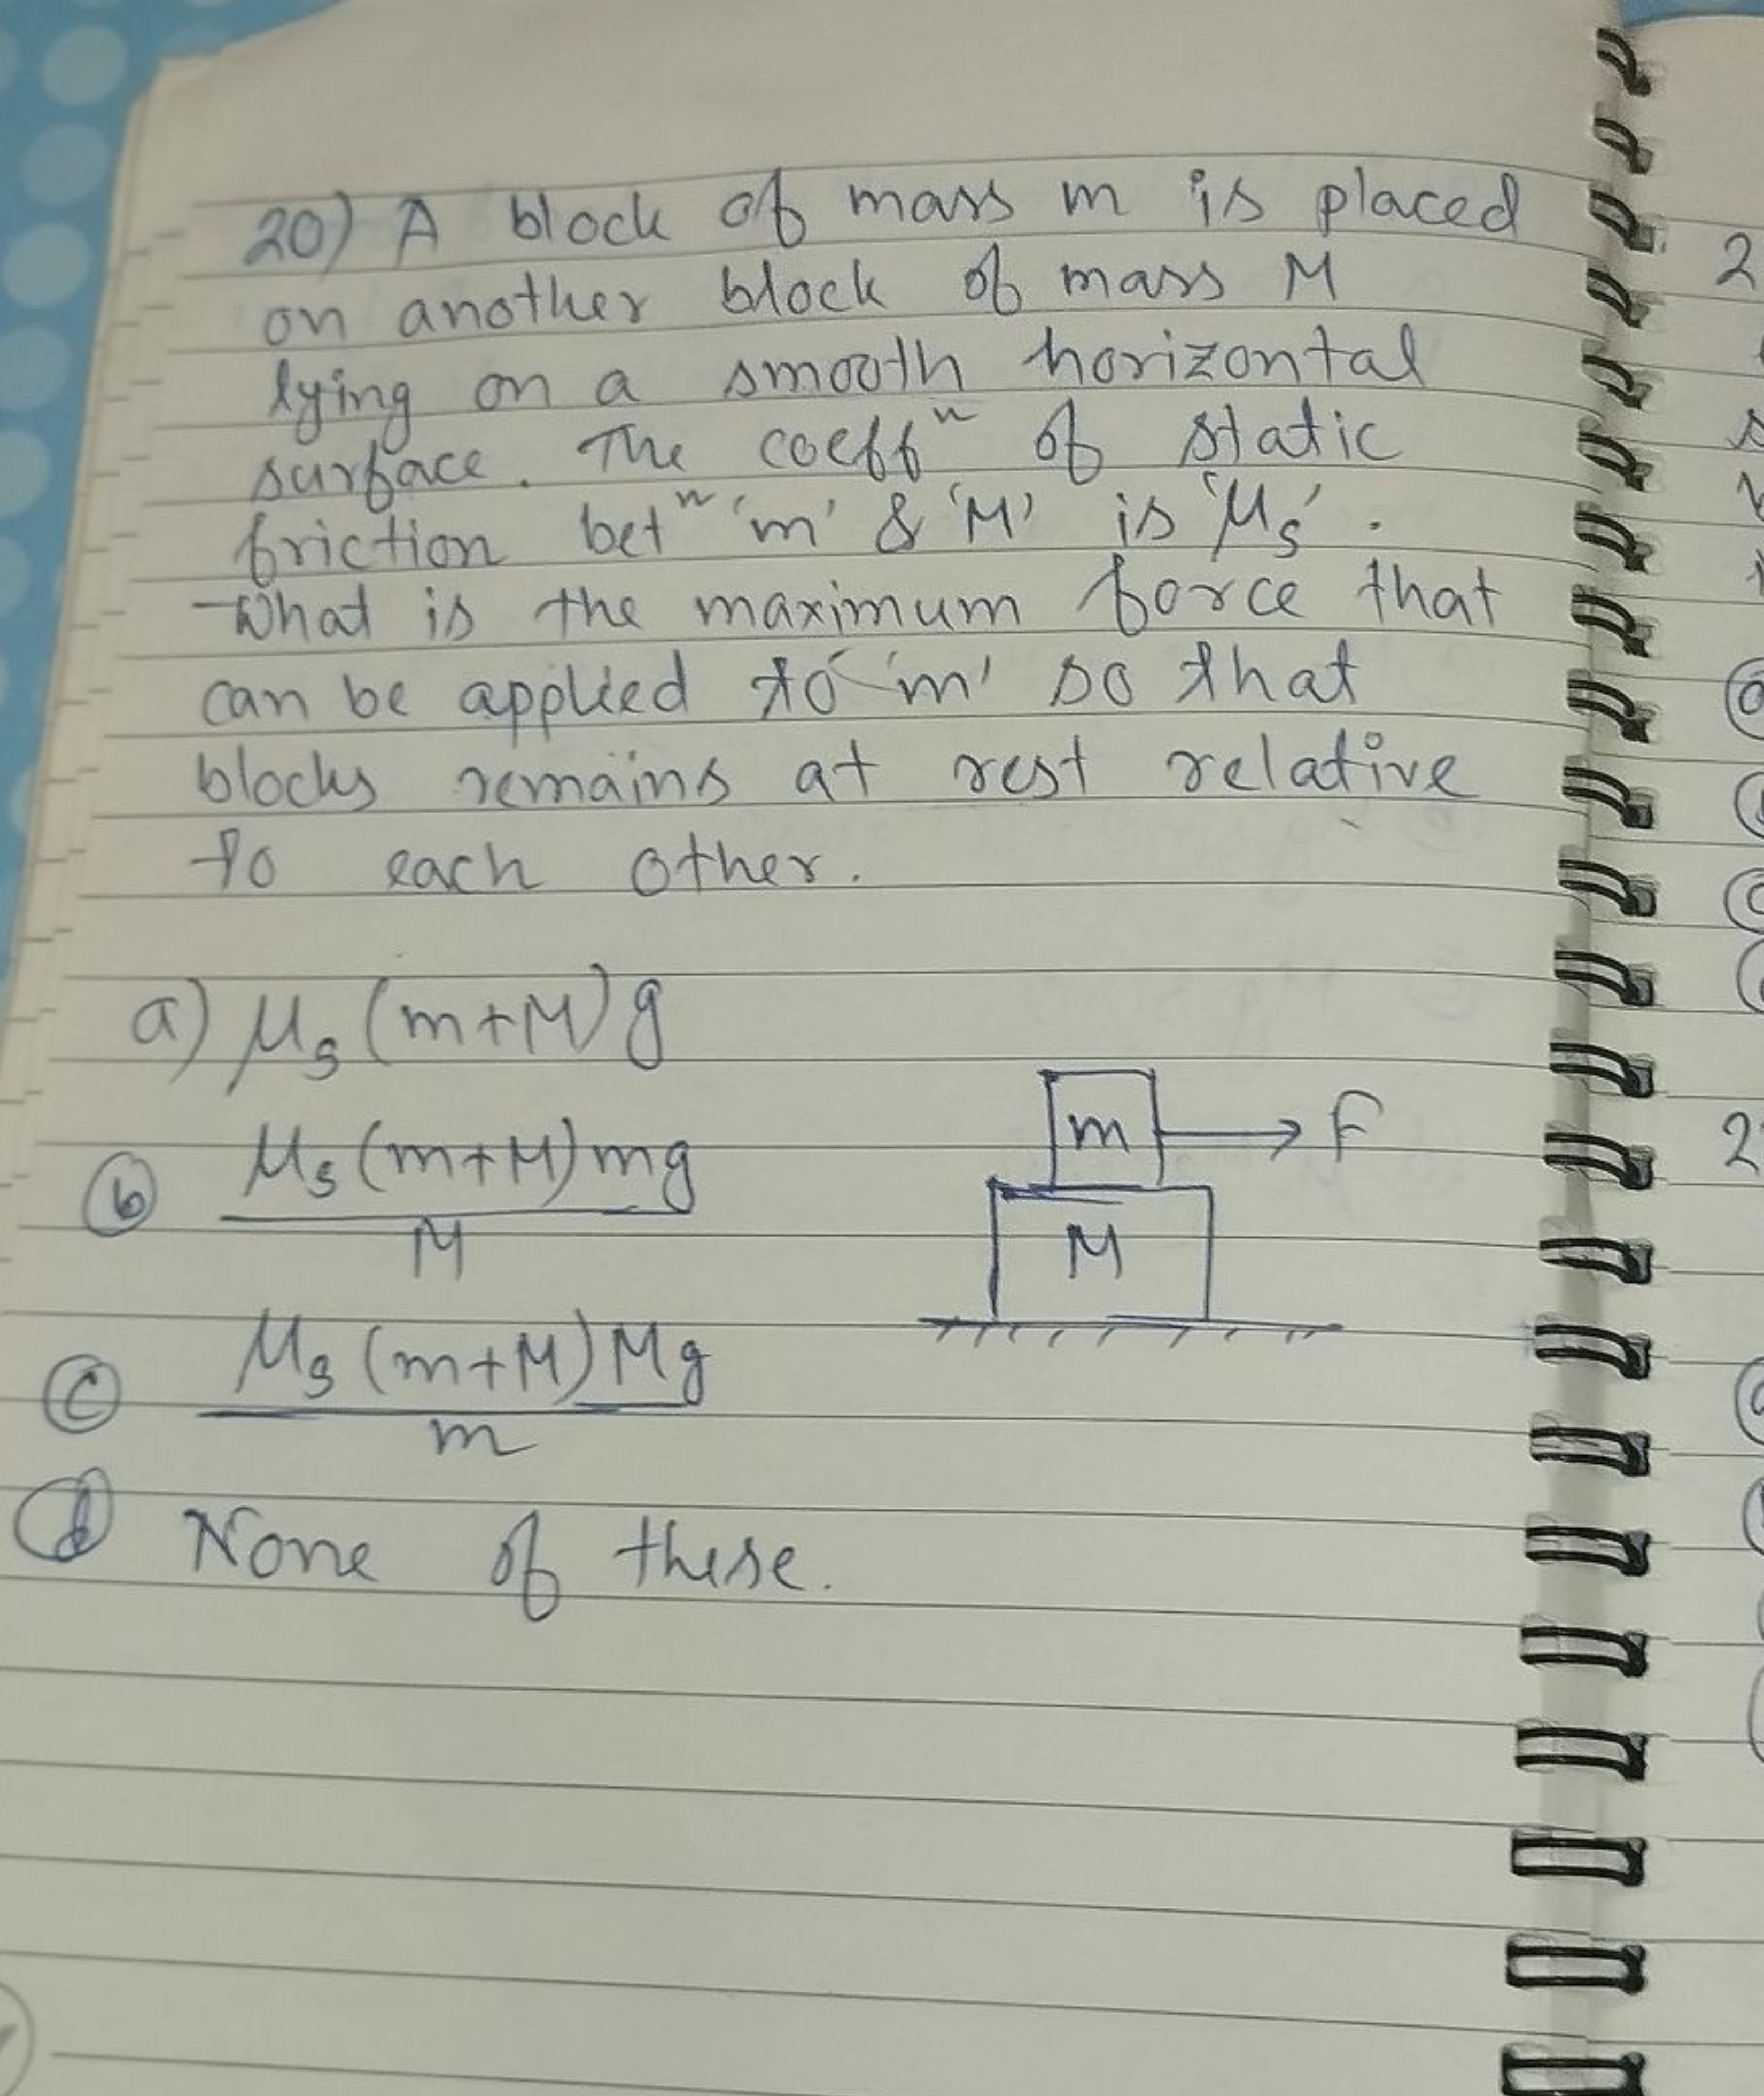 20) A block of mass m is placed
on another block of mass M
lying on a smooth horizontal
surface. The coeffⁿ of static
friction betⁿ 'm' & 'M' is 'μₛ'.
What is the maximum force that
can be applied to 'm' so that
blocks remains at rest relative
to each other.
a) μₛ(m+M)g
m → F
(b) μₛ(m+M)mg
M
M
(c) μₛ(m+M)Mg
m
(d) None of these.